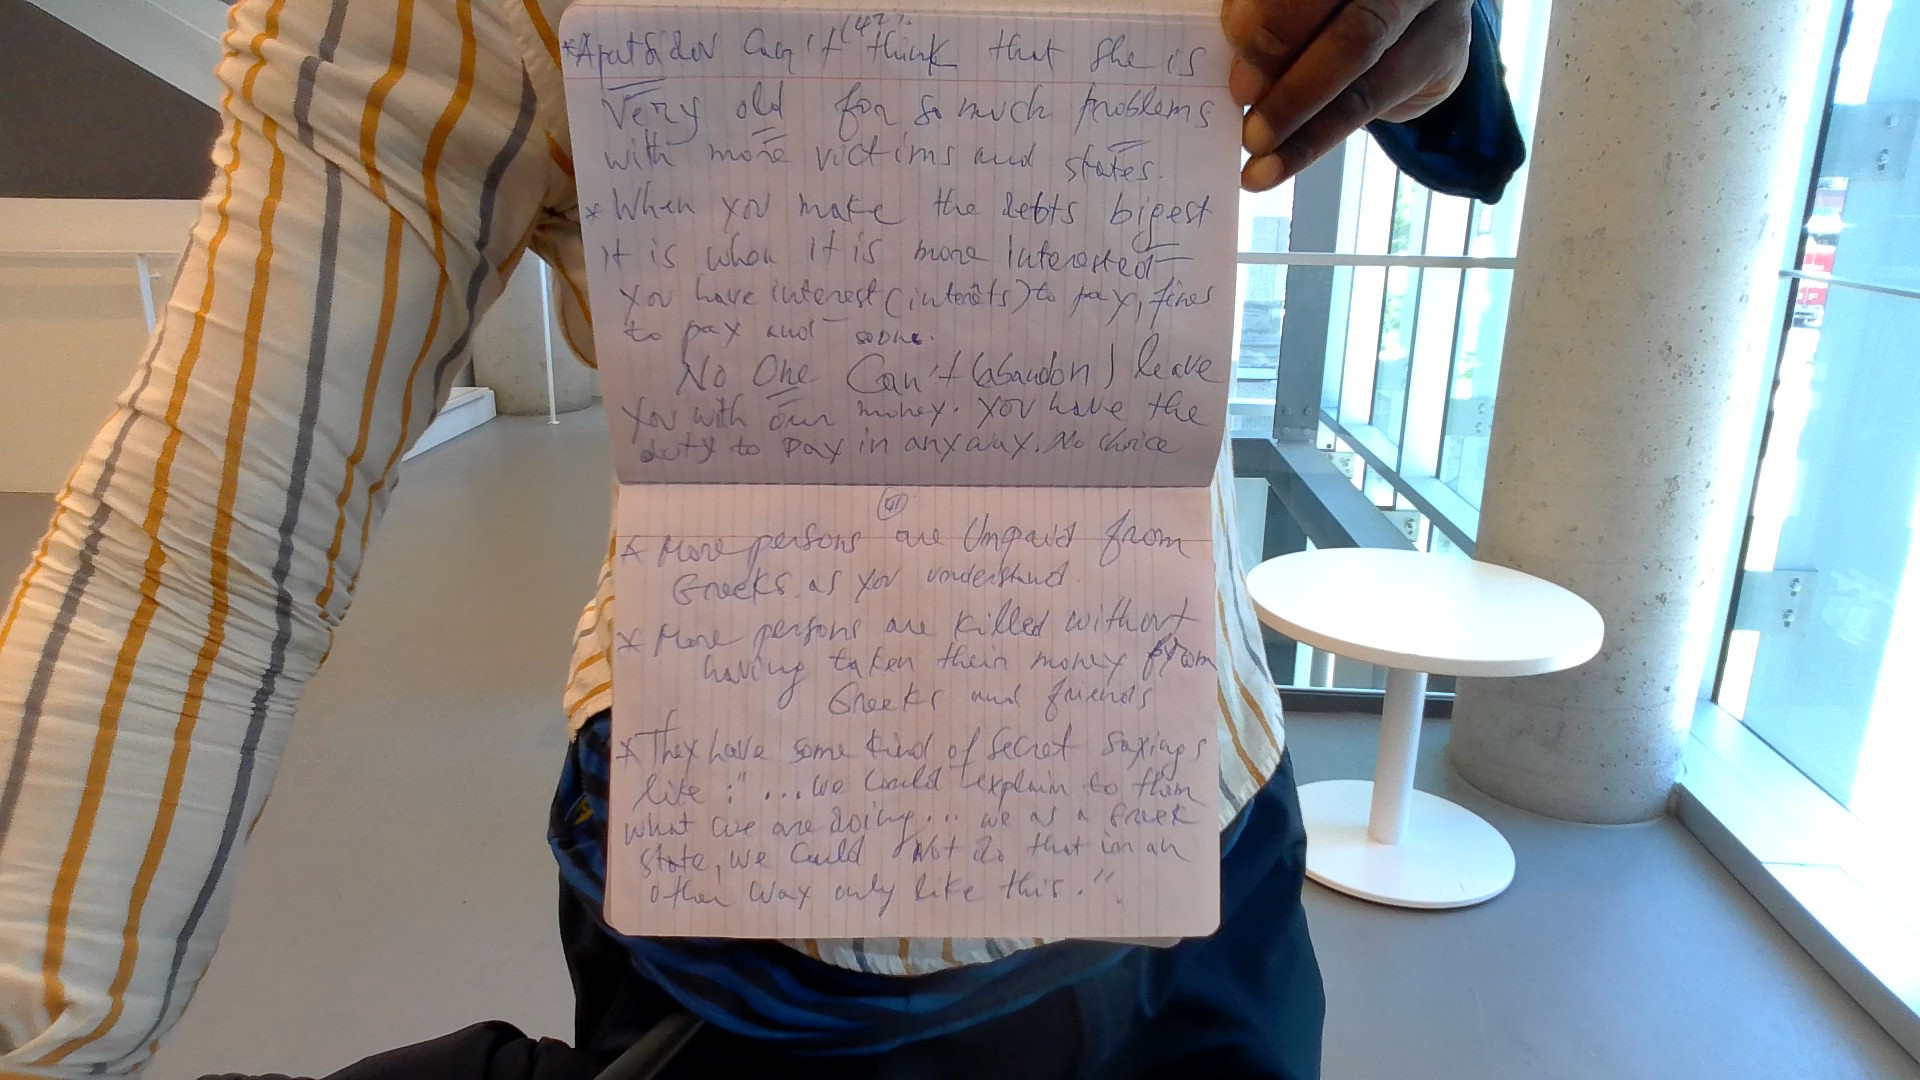 (42).
* Apatsidou Can't think that she is
very old for so much problems
with more victims and states.
* When you make the debts bigest
it is when it is more interested
you have interest (interêts) to pay, fines
to pay and soone.
No One Can't (abandon) leave
you with our money. You have the
duty to pay in anyway. No choice
* More persons are Unpaid from
Greeks as you understand.
* More persons are killed without
having taken their money from
Greeks and friends
* They have some kind of Secret sayings
like : "...we could explain to them
what we are doing... we as a Greek
state, we Could Not do that in an
other way only like this."